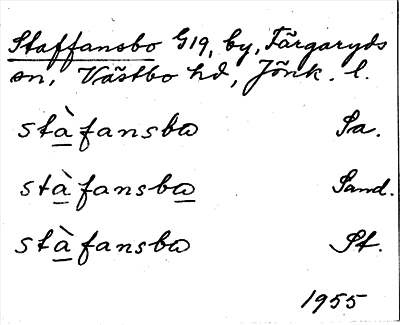 Staffansbo G19, by, Färgaryds
sn, Västbo hd, Jönk. l.
stàfansbω Sa.
stàfansbω Sand.
stàfansbω St.
1955